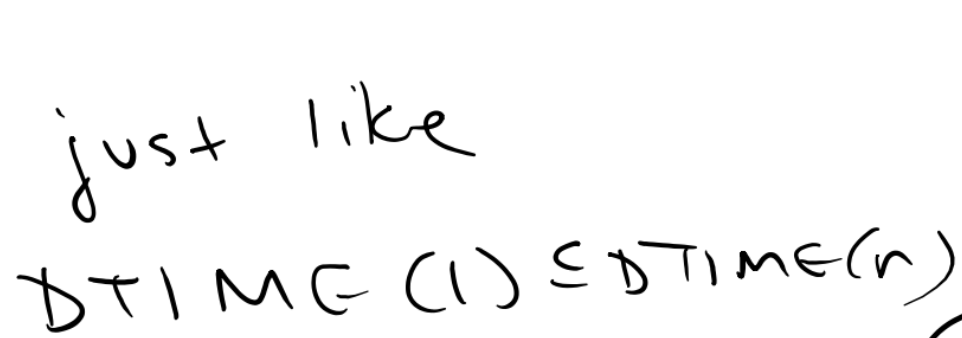 just like
DTIME(1) ⊆ DTIME(n)